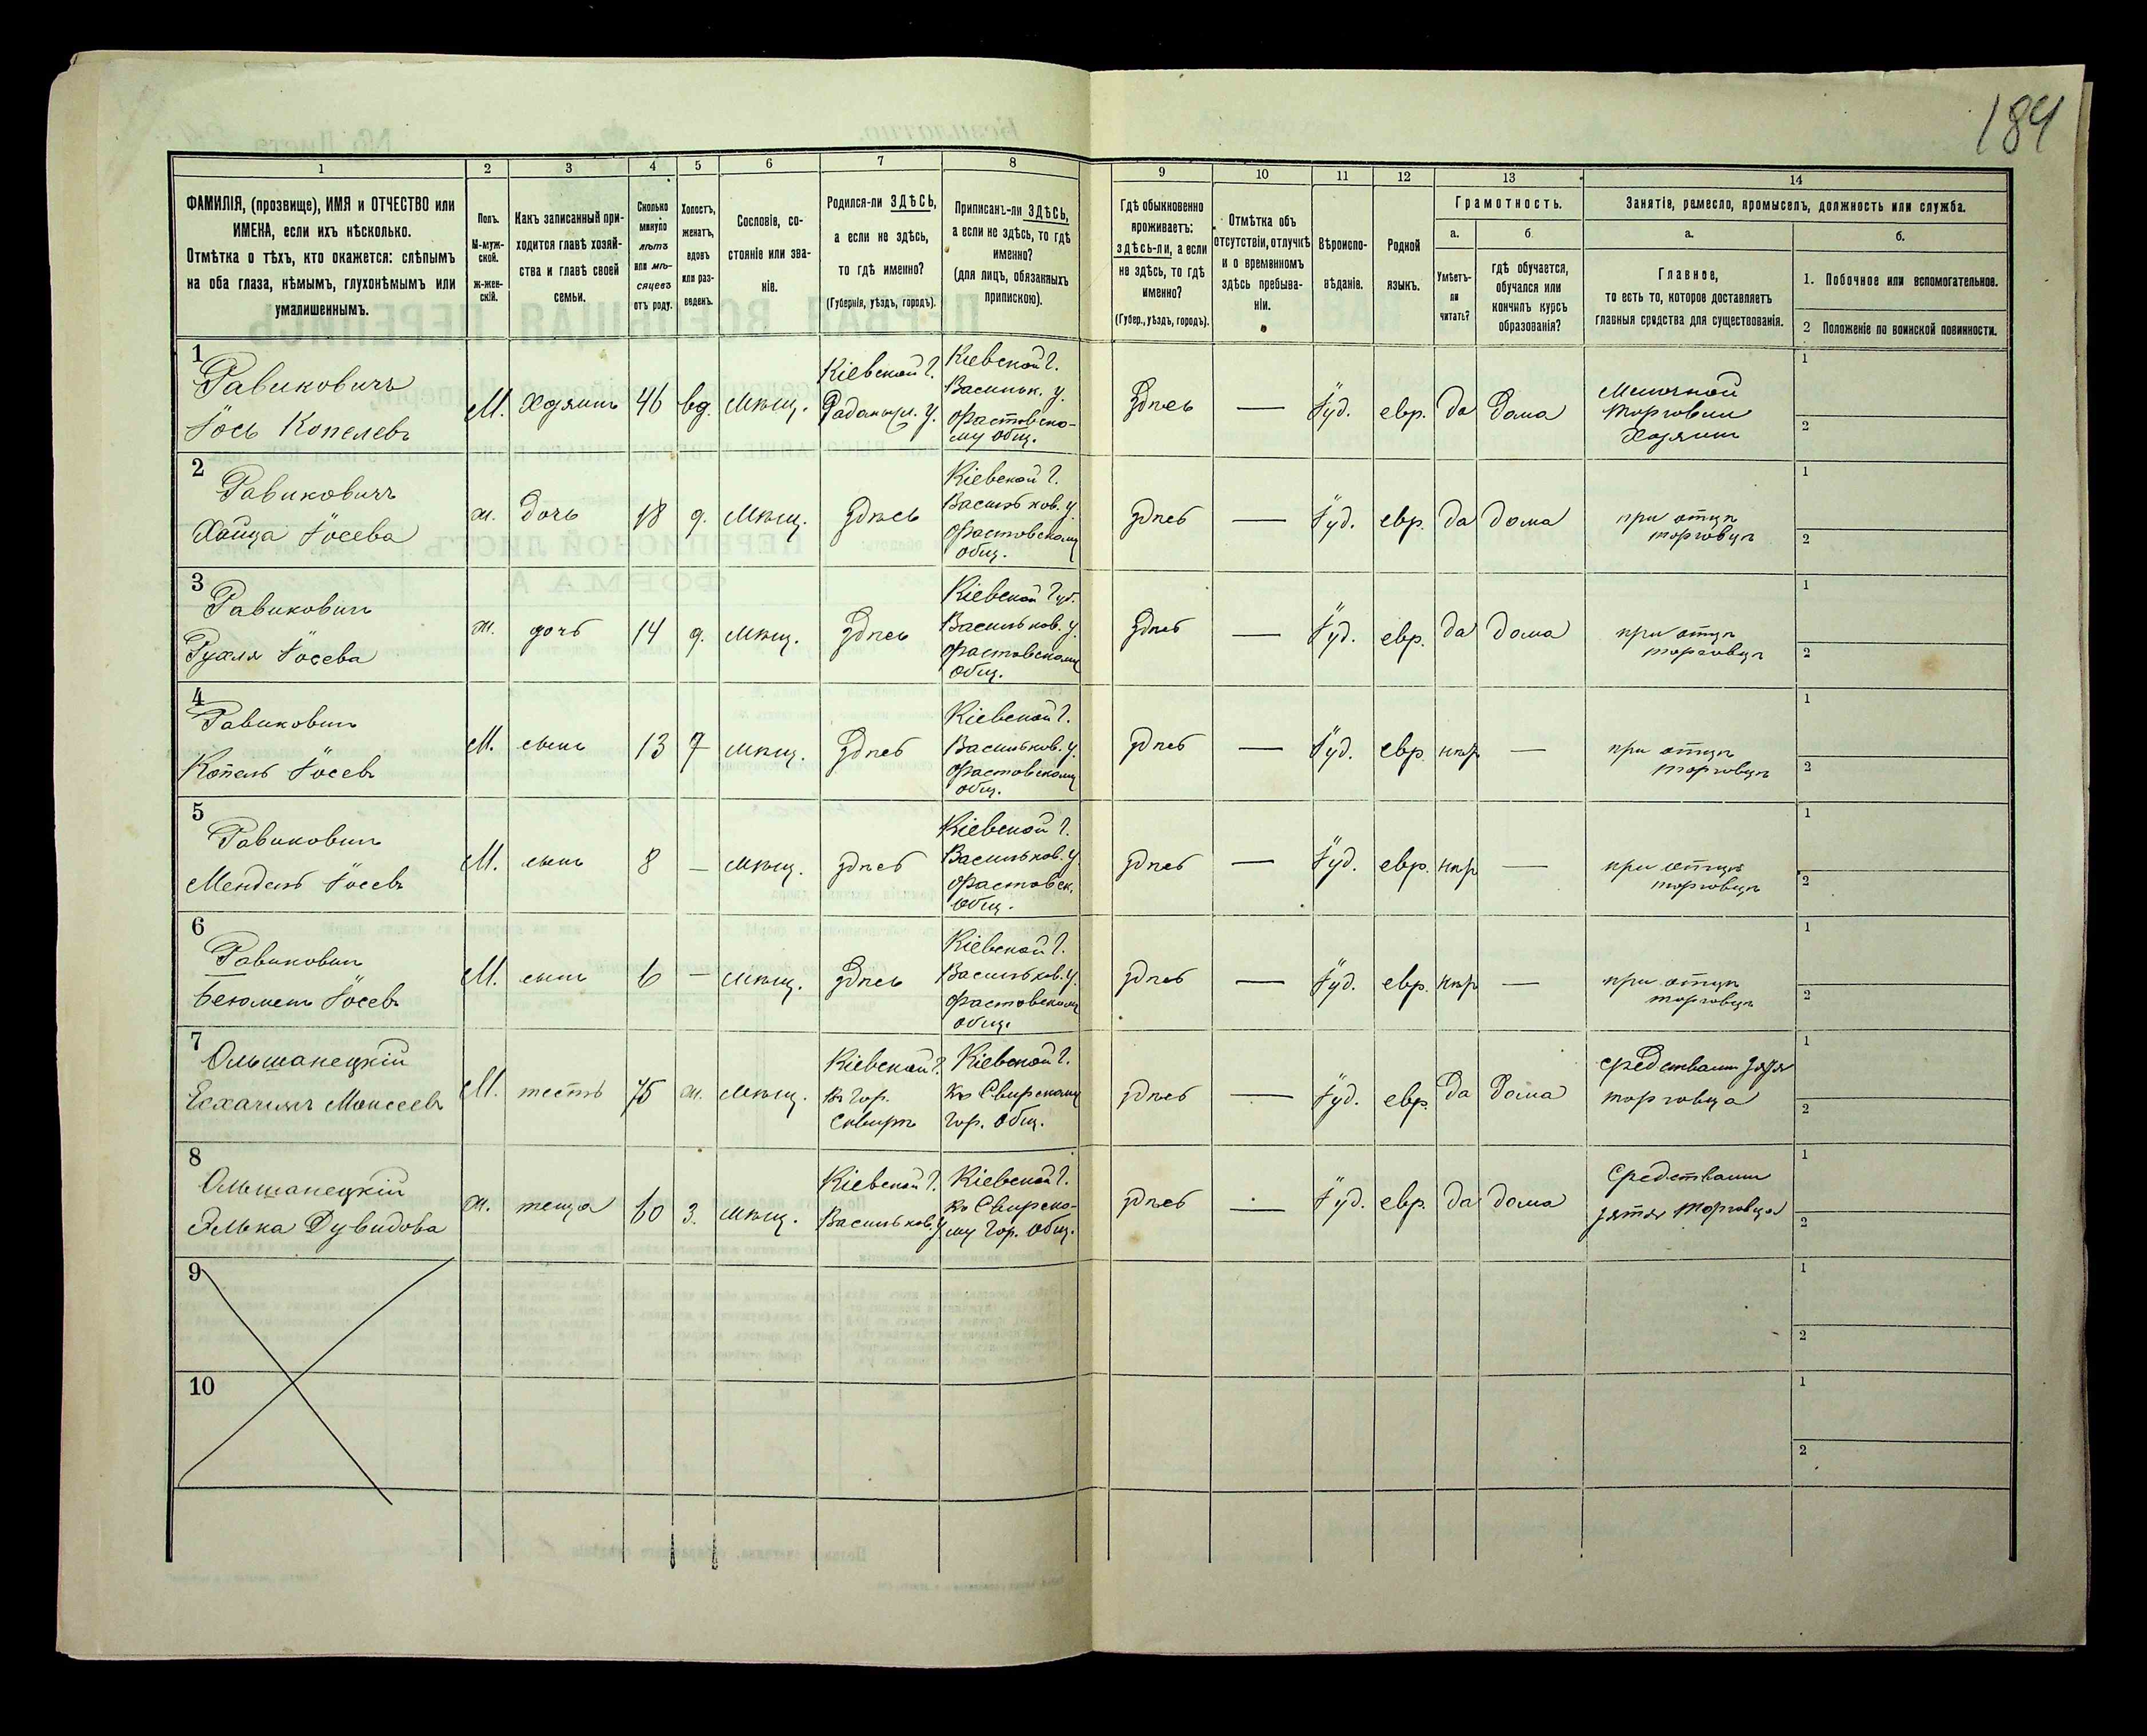 184
1 2 3 4 5 6 7 8 9 10 11 12 13 14
ФАМИЛІЯ, (прозвище), ИМЯ и ОТЧЕСТВО или
ИМЕНА, если ихъ нѣсколько.
Отмѣтка о тѣхъ, кто окажется: слѣпымъ
на оба глаза, нѣмымъ, глухонѣмымъ или
умалишеннымъ.
Полъ.
М-муж-
ской.
Ж-жен-
скій.
Какъ записанный при-
ходится главѣ хозяй-
ства и главѣ своей
семьи.
Сколько
минуло
лѣтъ
или мѣ-
сяцевъ
отъ роду.
Холостъ,
женатъ,
вдовъ
или раз-
веденъ.
Сословіе, со-
стояніе или зва-
ніе.
Родился-ли ЗДѢСЬ,
а если не здѣсь,
то гдѣ именно?
(Губернія, уѣздъ, городъ).
Приписанъ-ли ЗДѢСЬ,
а если не здѣсь, то гдѣ
именно?
(для лицъ, обязанныхъ
припискою).
Гдѣ обыкновенно
проживаетъ:
здѣсь-ли, а если
не здѣсь, то гдѣ
именно?
(Губер., уѣздъ, городъ).
Отмѣтка объ
отсутствіи, отлучкѣ
и о временномъ
здѣсь пребыва-
ніи.
Вѣроиспо-
вѣданіе.
Родной
языкъ.
Грамотность.
а.
Умѣетъ-
ли
читать?
б.
гдѣ обучается,
обучался или
кончилъ курсъ
образованія?
Занятіе, ремесло, промыселъ, должность или служба.
а.
Главное,
то есть то, которое доставляетъ
главныя средства для существованія.
б.
1. Побочное или вспомогательное.
2 Положеніе по воинской повинности.
1
Равиковичъ
Іось Копелевъ
М. Хозяинъ 46 вд. мѣщ.
Кіевской г.
Радомысл. у.
Кіевской г.
Васильк. у.
Фастовско-
му общ.
Здѣсь — Іуд. евр. да дома
Мелочной
торговли
Хозяинъ
1
2
2
Равиковичъ
Хайца Іосева
ж. дочь 18 д. мѣщ. здѣсь
Кіевской г.
Васильков. у.
Фастовскому
общ.
здѣсь — Іуд. евр. да дома
при отцѣ
торговцѣ
1
2
3
Равиковичъ
Рухля Іосева
ж. дочь 14 д. мѣщ. здѣсь
Кіевской губ.
Васильков. у.
Фастовскому
общ.
здѣсь — Іуд. евр. да дома
при отцѣ
торговцѣ
1
2
4
Равиковичъ
Копель Іосевъ
М. сынъ 13 мѣщ. здѣсь
Кіевской г.
Васильков. у.
Фастовскому
общ.
здѣсь — Іуд. евр. —
при отцѣ
торговцѣ
1
2
5
Равиковичъ
Мендель Іосевъ
М. сынъ 8 — мѣщ. здѣсь
Кіевской г.
Васильков. у.
Фастовск.
общ.
здѣсь — Іуд. евр. —
при отцѣ
торговцѣ
1
2
6
Равиковичъ
Іосевъ
М. сынъ 6 — мѣщ. здѣсь
Кіевской г.
Васильков. у.
Фастовскому
общ.
здѣсь — Іуд. евр. —
при отцѣ
торговцѣ
1
2
7
Ольшанецкій
Моисеевъ
М. тесть 75 ж. мѣщ.
Кіевской г.
въ гор.
Сквирѣ
Кіевской г.
къ Сквирскому
гор. общ.
здѣсь — Іуд. евр. да дома
средствами зятя
торговца
1
2
8
Ольшанецкій
Элька Дувидова
ж. теща 60 з. мѣщ.
Кіевской г.
Васильков. у.
Кіевской г.
къ Сквирско-
му гор. общ.
здѣсь — Іуд. евр. да дома
Средствами
зятя торговца
1
2
9
1
2
10
1
2